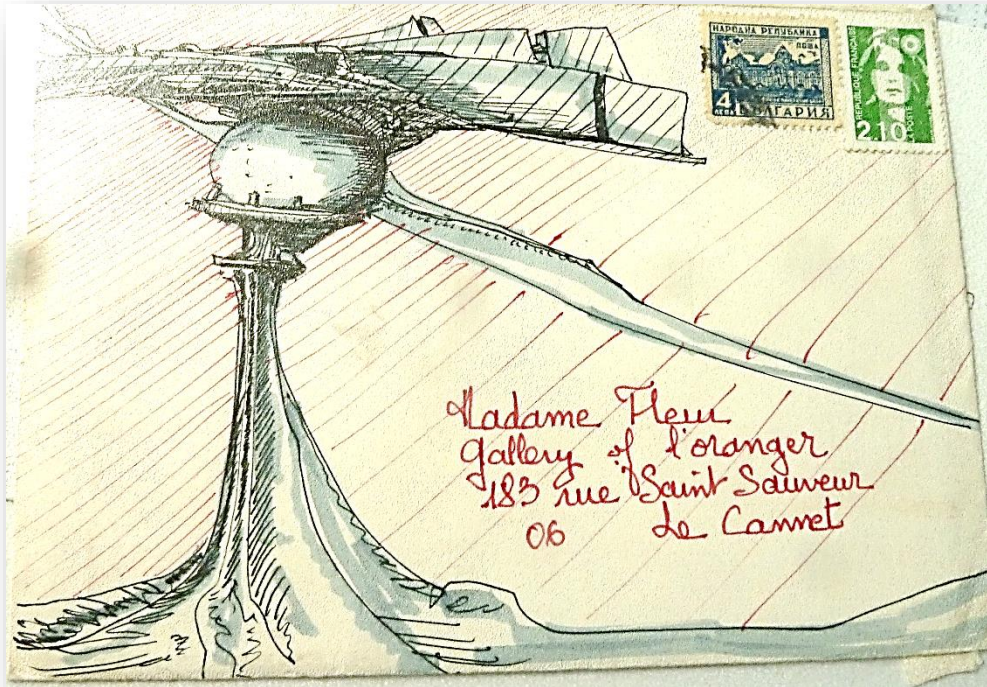 НАРОДНА РЕПУБЛИКА
ПОЩА
4
ЛЕВА
БЪЛГАРИЯ
REPUBLIQUE FRANÇAISE
2,10
LA POSTE
Madame Fleur
Gallery of l'oranger
183 rue Saint Sauveur
06 Le Cannet